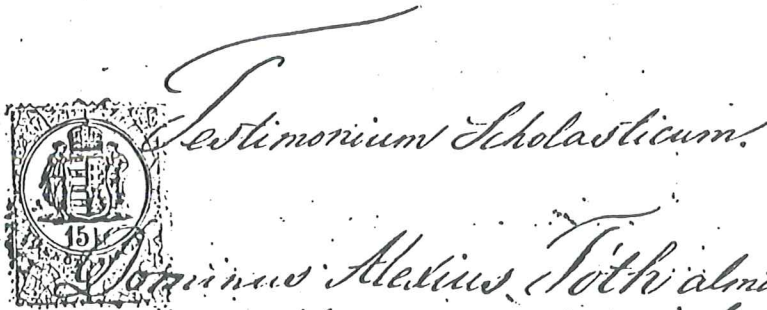 Testimonium Scholasticum.
15
Dominus Alexius Tóth almi